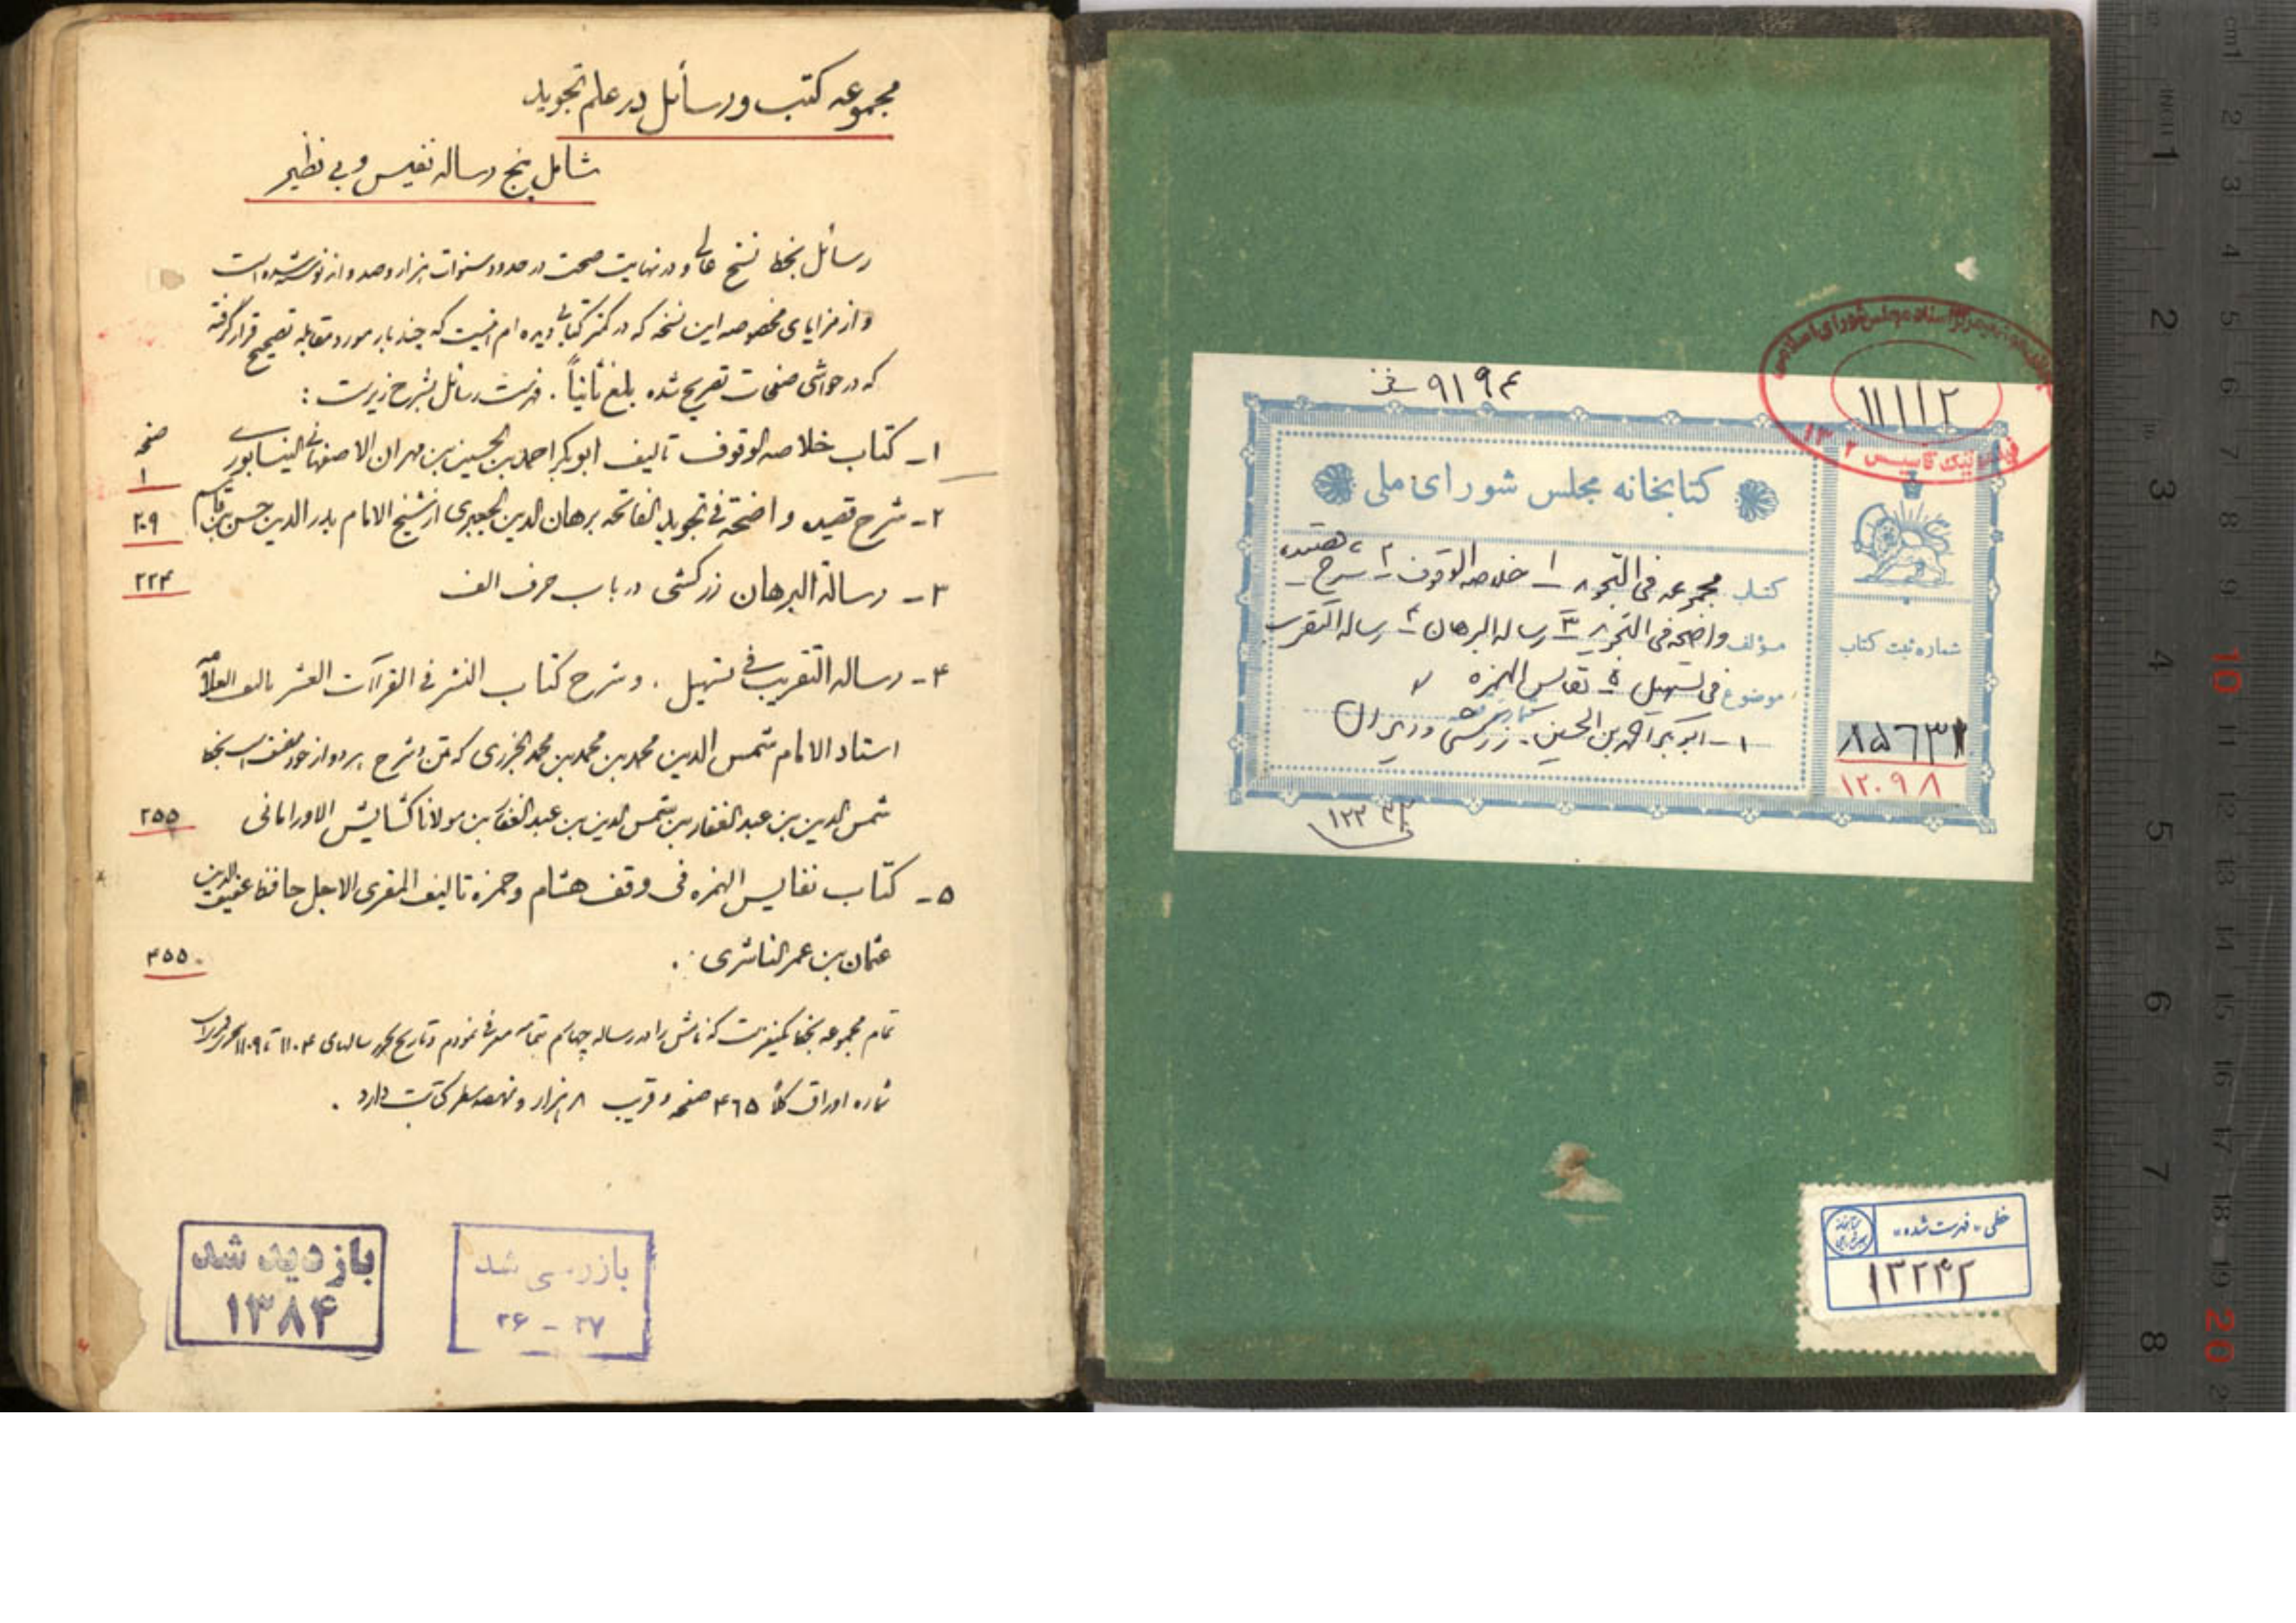 مجموعه کتب و رسائل در علم تجوید
شامل پنج رساله نفیس و بی نظیر
رسائل بخط نسخ عالی و در نهایت صحت در حدود سنوات هزار و صد و اند نوشته شده است
و از مزایای مخصوصه این نسخه که در کمتر کتابی دیده ام اینست که چند بار مورد مقابله تصحیح قرار گرفته
که در حواشی صفحات تصریح شده بلغ ثانیاً . فهرست رسائل بشرح زیر است :
صفحه
۱ - کتاب خلاصه الوقوف تالیف ابوبکر احمد بن الحسین بن مهران الاصفهانی النیسابوری ۱
۲ - شرح قصیده واضحة فی تجوید الفاتحه برهان الدین الجعبری از شیخ الامام بدر الدین حسن بن قاسم ۲۰۹
۳ - رسالة البرهان زرکشی در باب حرف الف ۲۲۴
۴ - رساله التقریب فی تسهیل . و شرح کتاب النشر فی القرآآت العشر تالیف العلامه
استاد الامام شمس الدین محمد بن محمد بن محمد الجزری که متن و شرح هر دو از خود مصنف است بخط
شمس الدین بن عبد الغفار بن شمس الدین بن عبد الغفار بن مولانا کشایش الاورامانی ۲۵۵
۵ - کتاب نفایس الهمزه فی وقف هشام و حمزه تالیف المقری الاجل حافظ عفیف الدین
عثمان بن عمر الناشری . ۴۵۵
تمام مجموعه بخط یکنفرست که نامش را در رساله چهارم بتمامه معرفی نمودم و تاریخ تحریر سالهای ۱۱۰۴ تا ۱۱۰۹
شماره اوراق کلاً ۴۶۵ صفحه و قریب ۸ هزار و نهصد سطر کتابت دارد .
بازدید شد
۱۳۸۴
بازرسی شد
۳۶ - ۳۷
۹۱۹۴
۱۱۱۱۲
کتابخانه مجلس شورای ملی
کتاب مجموعه فی التجوید ۱ - خلاصه الوقوف ۲ - شرح قصیده
مؤلف واضحه فی التجوید ۳ - رساله البرهان ۴ - رساله التقریب
موضوع فی تسهیل ۵ - نفایس الهمزه
۱ - ابوبکر احمد بن الحسین . زرکشی و دیگران
شماره ثبت کتاب
۸۵۶۳۱
۱۲۰۹۸
۱۲۳۴۳
خطی «فهرست شده»
۱۳۲۴۲